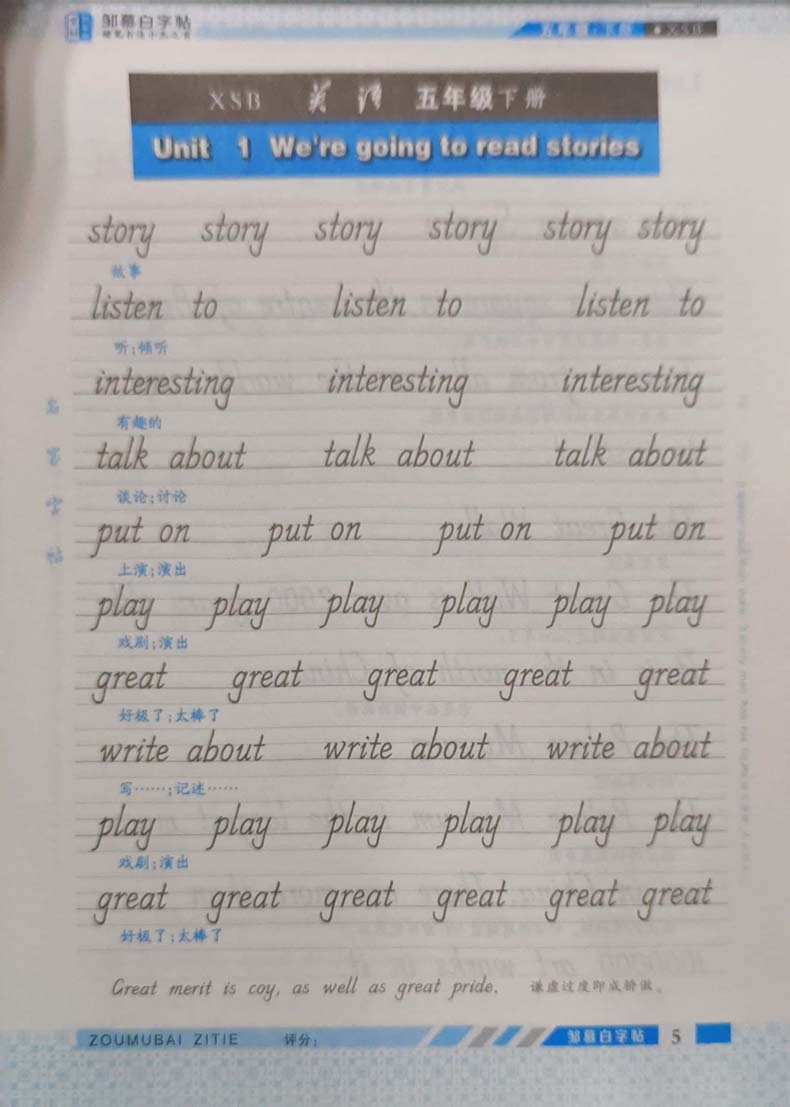 邹慕白字帖
硬笔书法十大名家
五年级·下册 XSB
XSB 英语 五年级下册
Unit 1 We're going to read stories
story story story story story story
故事
listen to listen to listen to
听;倾听
interesting interesting interesting
有趣的
talk about talk about talk about
谈论;讨论
put on put on put on put on
上演;演出
play play play play play play
戏剧;演出
great great great great great
好极了;太棒了
write about write about write about
写……;记述……
play play play play play play
戏剧;演出
great great great great great great
好极了;太棒了
Great merit is coy, as well as great pride. 谦虚过度即成骄傲。
ZOUMUBAI ZITIE 评分: 邹慕白字帖 5